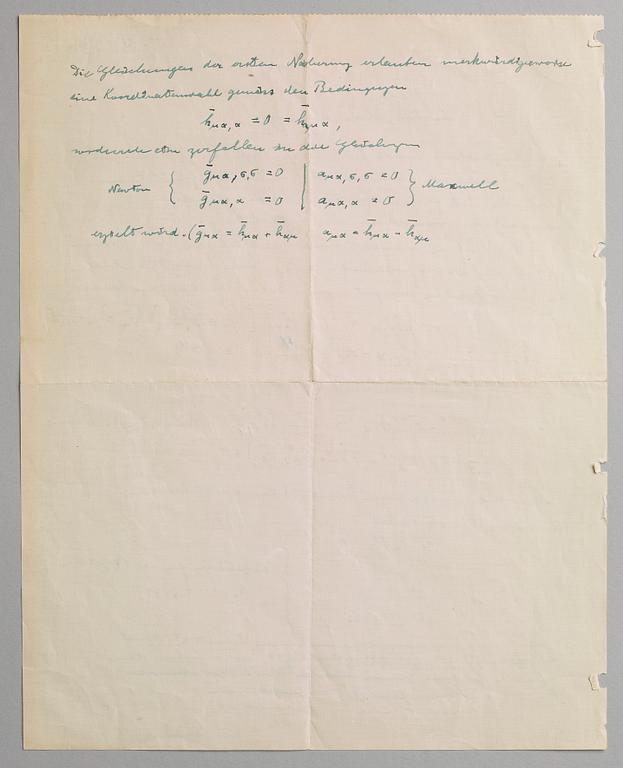 Die Gleichungen der ersten Näherung erlauben merkwürdigerweise
eine Koordinatenwahl gemäss den Bedingungen
h̄μα,α = 0 = h̄μα,
wodurch eine zerfallen in die Gleichungen
Newton { ḡμα,σ,σ = 0 | aμα,σ,σ = 0 } Maxwell
ḡμα,α = 0 | aμα,α = 0
erzielt wird. (ḡμα = h̄μα + h̄αμ aμα = h̄μα - h̄αμ